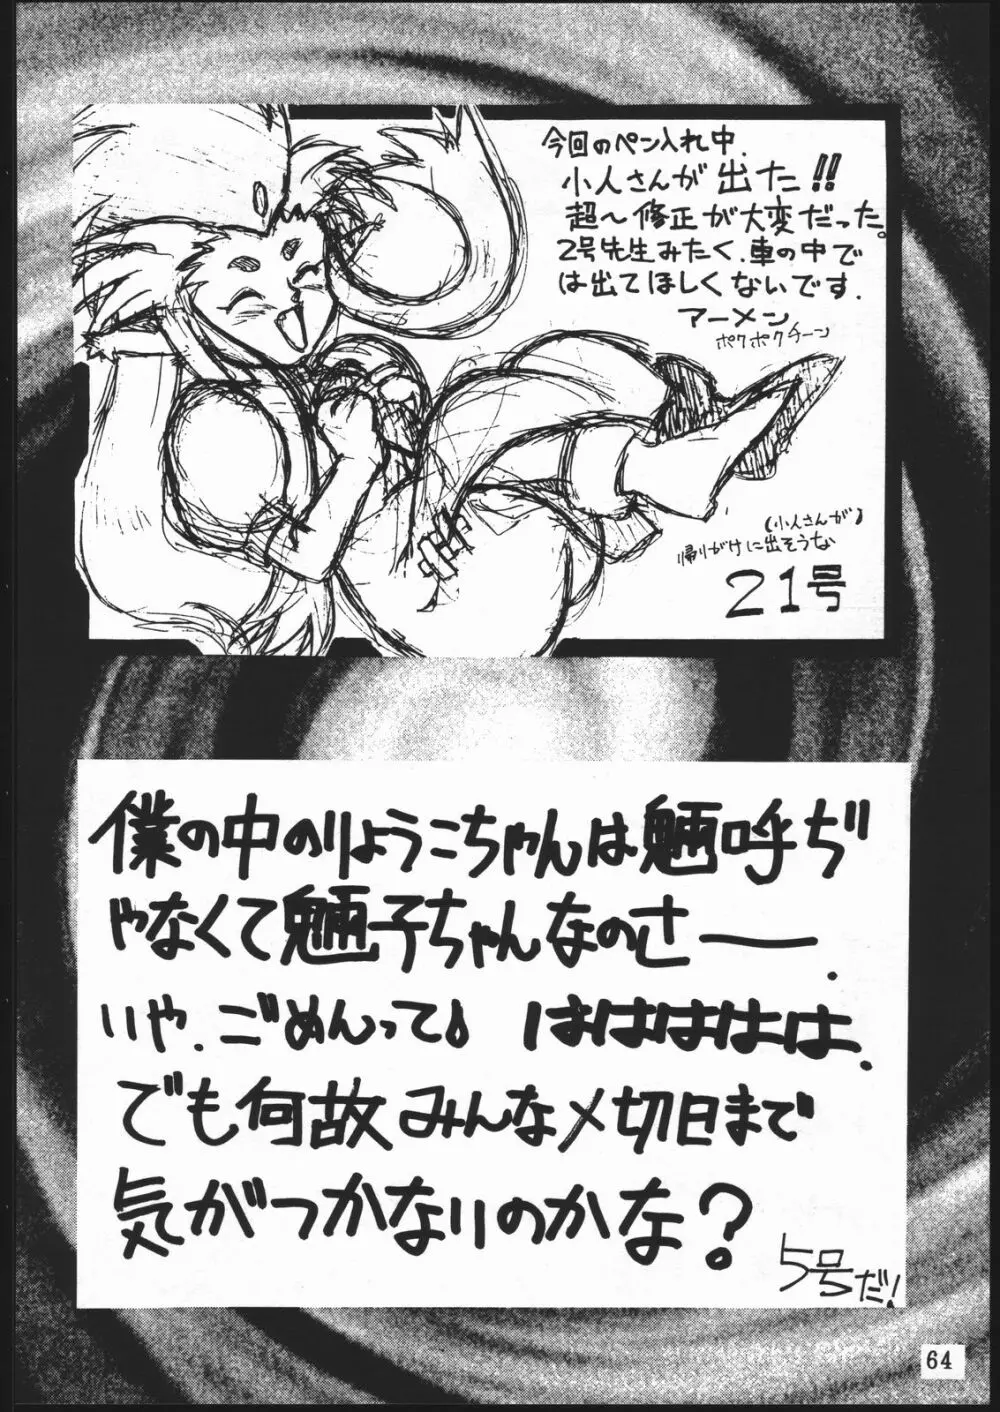 今回のペン入れ中、
小人さんが出た!!
超〜修正が大変だった。
2号先生みたく、車の中で
は出てほしくないです.
アーメン
ポクポクチーン
(小人さんが)
帰りがけに出そうな
21号
僕の中のりょうこちゃんは魎呼ぢ
ゃなくて魎子ちゃんなのさー.
いや.ごめんって。はははははは.
でも何故みんな〆切日まで
気がつかないのかな?
5号だ!
64